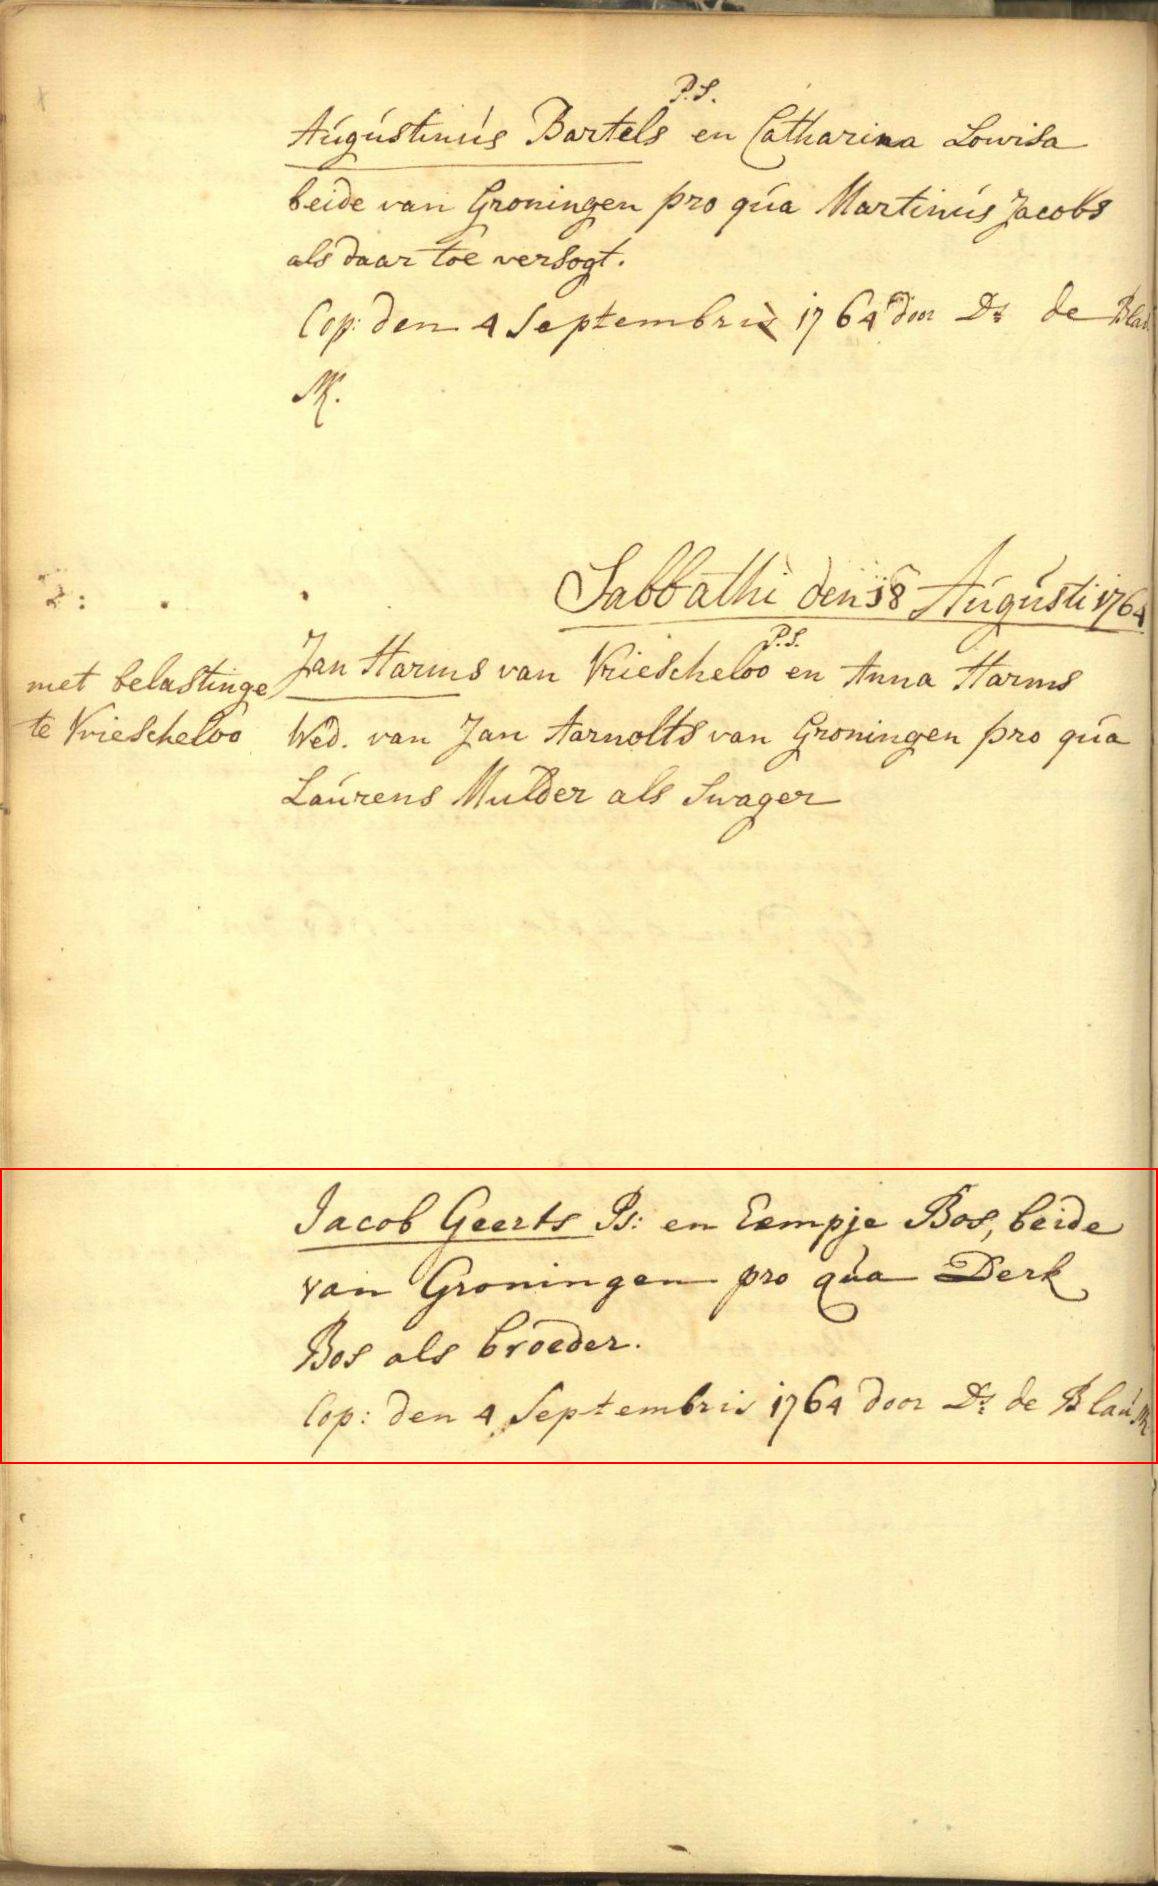 P.S.
Augustinus Bartels en Catharina Lowisa
beide van Groningen pro qua Martinus Jacobs
als daar toe versogt.
Cop: den 4 Septembris 1764 door Ds de Blau
M.
Sabbathi den 18 Augusti 1764
P.S.
Jan Harms van Vriescheloo en Anna Harms
met belastinge
te Vriescheloo
Wed. van Jan Aarnolts van Groningen pro qua
Laurens Mulder als Swager
Jacob Geerts Ps: en Eempje Bos, beide
van Groningen pro qua Derk
Bos als broeder.
Cop: den 4 Septembris 1764 door Ds de Blau M